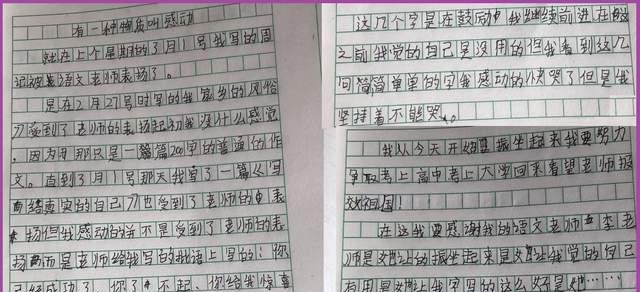 有一种物质叫感动
就在上个星期的3月1号我写的周
记被表语文老师表扬了。
是在2月27号时写的我家乡的风俗
》受到了老师的表扬起初我没什么感觉
。因为那只是一篇篇200字的普通的作
文。直到了3月1号那天我写了一篇《写
给真实的自己》也受到了老师的表
扬但我感动的并不是受到了老师的表
扬而是老师给我写的批语上写的:你
已经成功了,你了不起,你给我惊喜
这几个字是在鼓励我继续前进在般
之前我觉的自己是没用的但我看到这几
句简简单单的字我感动的快哭了但是我
坚持着不能哭。
我从今天开始要振坐起来我要努力
争取考上高中考上大学回来看望老师报
效祖国!
在这我要感谢我的语文老师李老
师是她让的振坐起来是她让我觉的自己
有用是她让我字写的这么好是她……